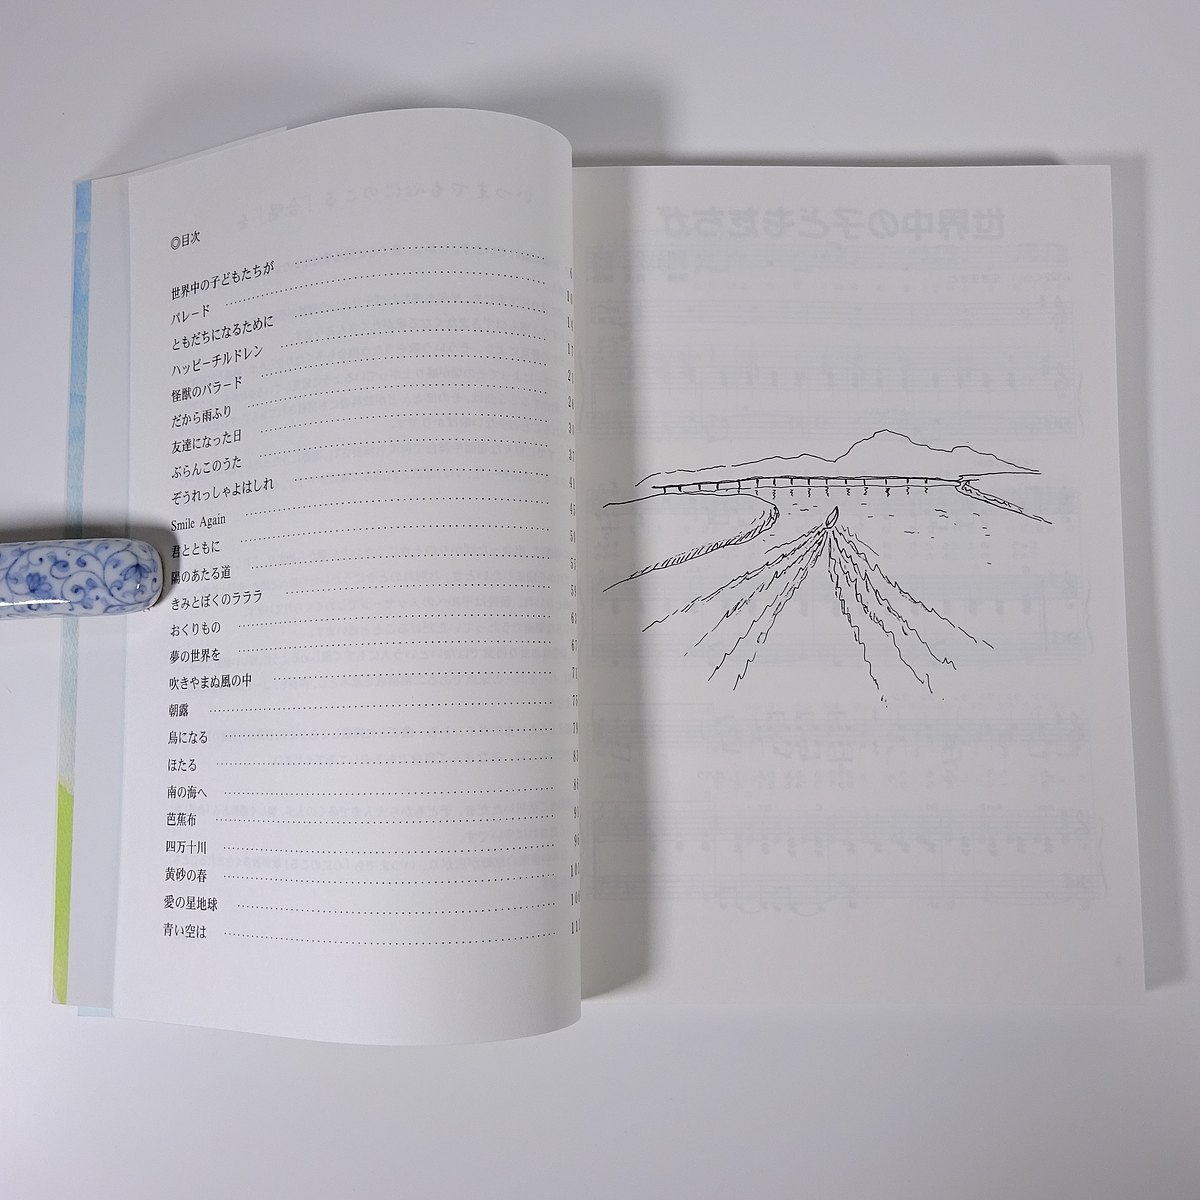 ◎目次
世界中の子どもたちが
パレード
ともだちになるために
ハッピーチルドレン
怪獣のバラード
だから雨ふり
友達になった日
ぶらんこのうた
ぞうれっしゃよはしれ
Smile Again
君とともに
陽のあたる道
きみとぼくのラララ
おくりもの
夢の世界を
吹きやまぬ風の中
朝露
鳥になる
ほたる
南の海へ
芭蕉布
四万十川
黄砂の春
愛の星地球
青い空は